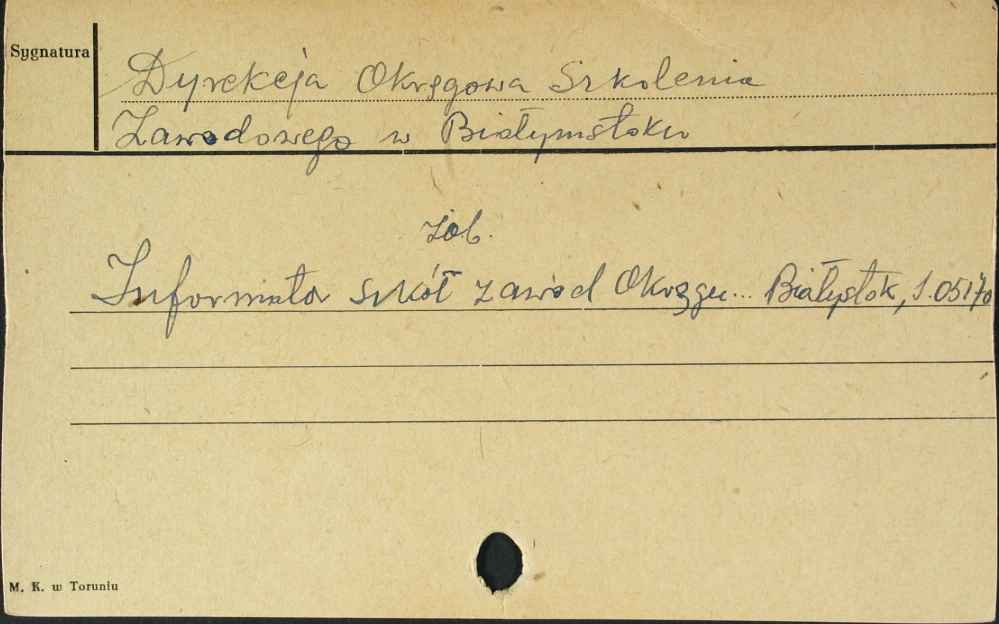 Sygnatura
Dyrekcja Okręgowa Szkolenia
Zawodowego w Białymstoku
zob.
Informator szkół zawod Okręgu... Białystok, 1.05170
M. K. w Toruniu